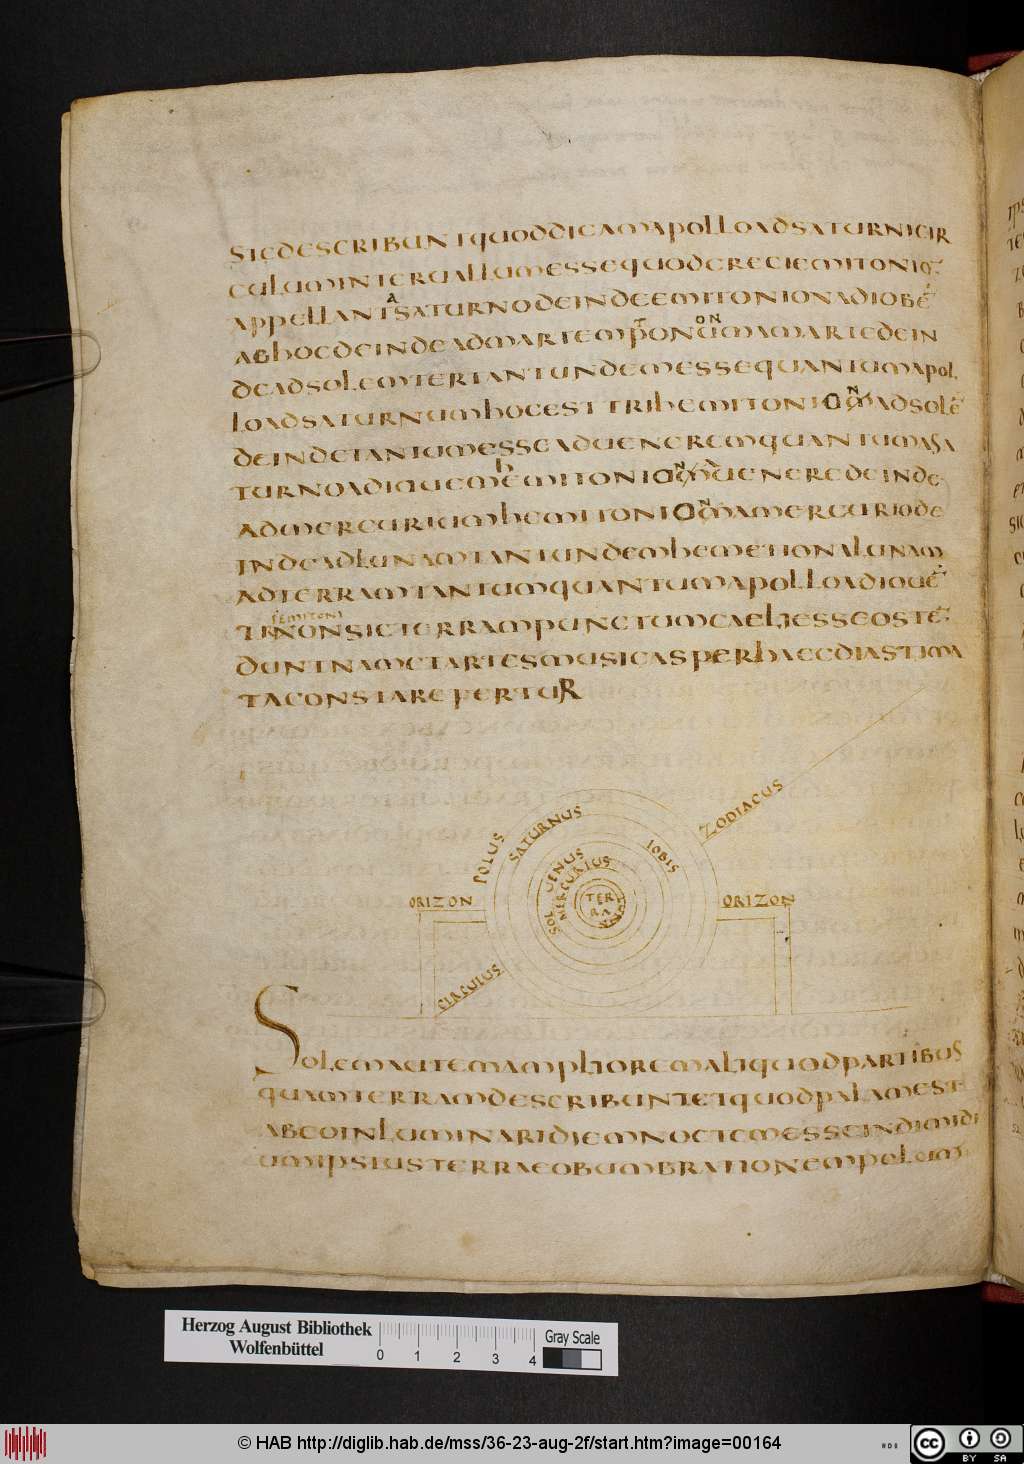 SICDESCRIBUNTQUODDICAMAPOLLOADSATURNICIR
CULUMINTERUALLUMESSEQUODGRECIEMITONION
APPELLANTASATURNODEINDEEMITONIONADIOBE
ABHOCDEINDEADMARTEMTONONUMAMARTEDEIN
DEADSOLEMTERTANTUNDEMESSEQUANTUMAPOL
LOADSATURNUMHOCESTTRIHEMITONIONADSOLE
DEINDETANTUMESSEADUENEREMQUANTUMASA
TURNOADIOUEMHEMITONIONUENEREDEINDE
ADMERCURIUMHEMITONIONAMERCURIODE
INDEADLUNAMTANTUNDEMHEMETIONALUNAM
ADTERRAMTANTUMQUANTUMAPOLLOADIOUE
SEMITONI
TRNONSICTERRAMPUNCTUMCAELIESSEOSTE
DUNTNAMETARTESMUSICASPERHAECDIASTIMA
TACONSTAREFERTUR
ZODIACUS
POLUS
SATURNUS
IOBIS
UENUS
MERCURIUS
SOL
ORIZON
TERRA
LUNA
ORIZON
CIRCULUS
SOLEMAUTEMAMPLIOREMALIQUODPARTIBUS
QUAMTERRAMDESCRIBUNTETQUODPALAMEST
ABEOINLUMINARIDIEMNOCTEMESSEINDIMIDI
UMIPSIUSTERRAEOBUMBRATIONEMPOLUM
Herzog August Bibliothek
Wolfenbüttel
0 1 2 3 4
Gray Scale
© HAB http://diglib.hab.de/mss/36-23-aug-2f/start.htm?image=00164
cc BY SA